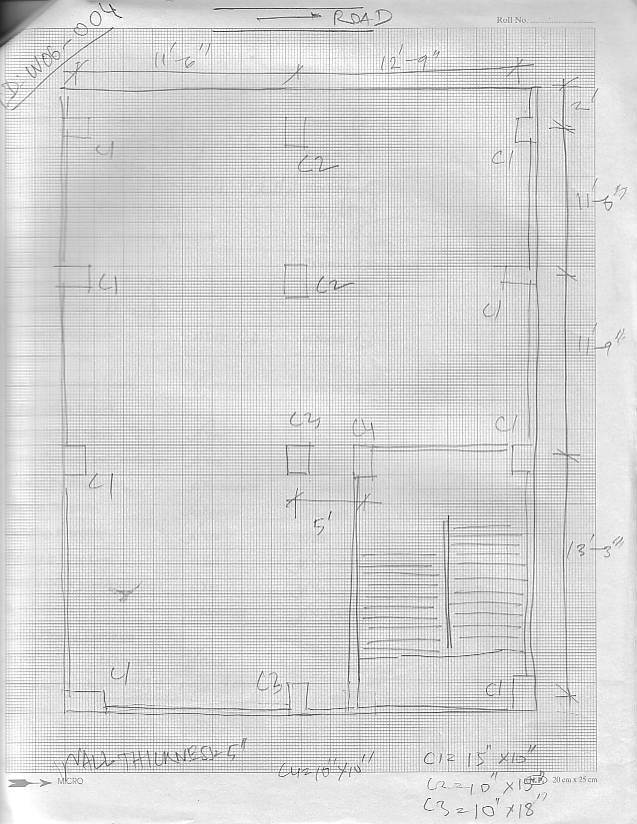 → ROAD
Roll No.
ID: W06-004
11'-6" 12'-9"
2'
C1 C2 C1
11'-6"
C1 C2 C1
11'-9"
C3 C4 C1
C1
5'
13'-3"
C1 C3 C1
WALL THICKNESS = 5"
C4=10"X10"
C1=15"X10"
C2=10"X15"
C3=10"X18"
MICRO
20 cm x 25 cm